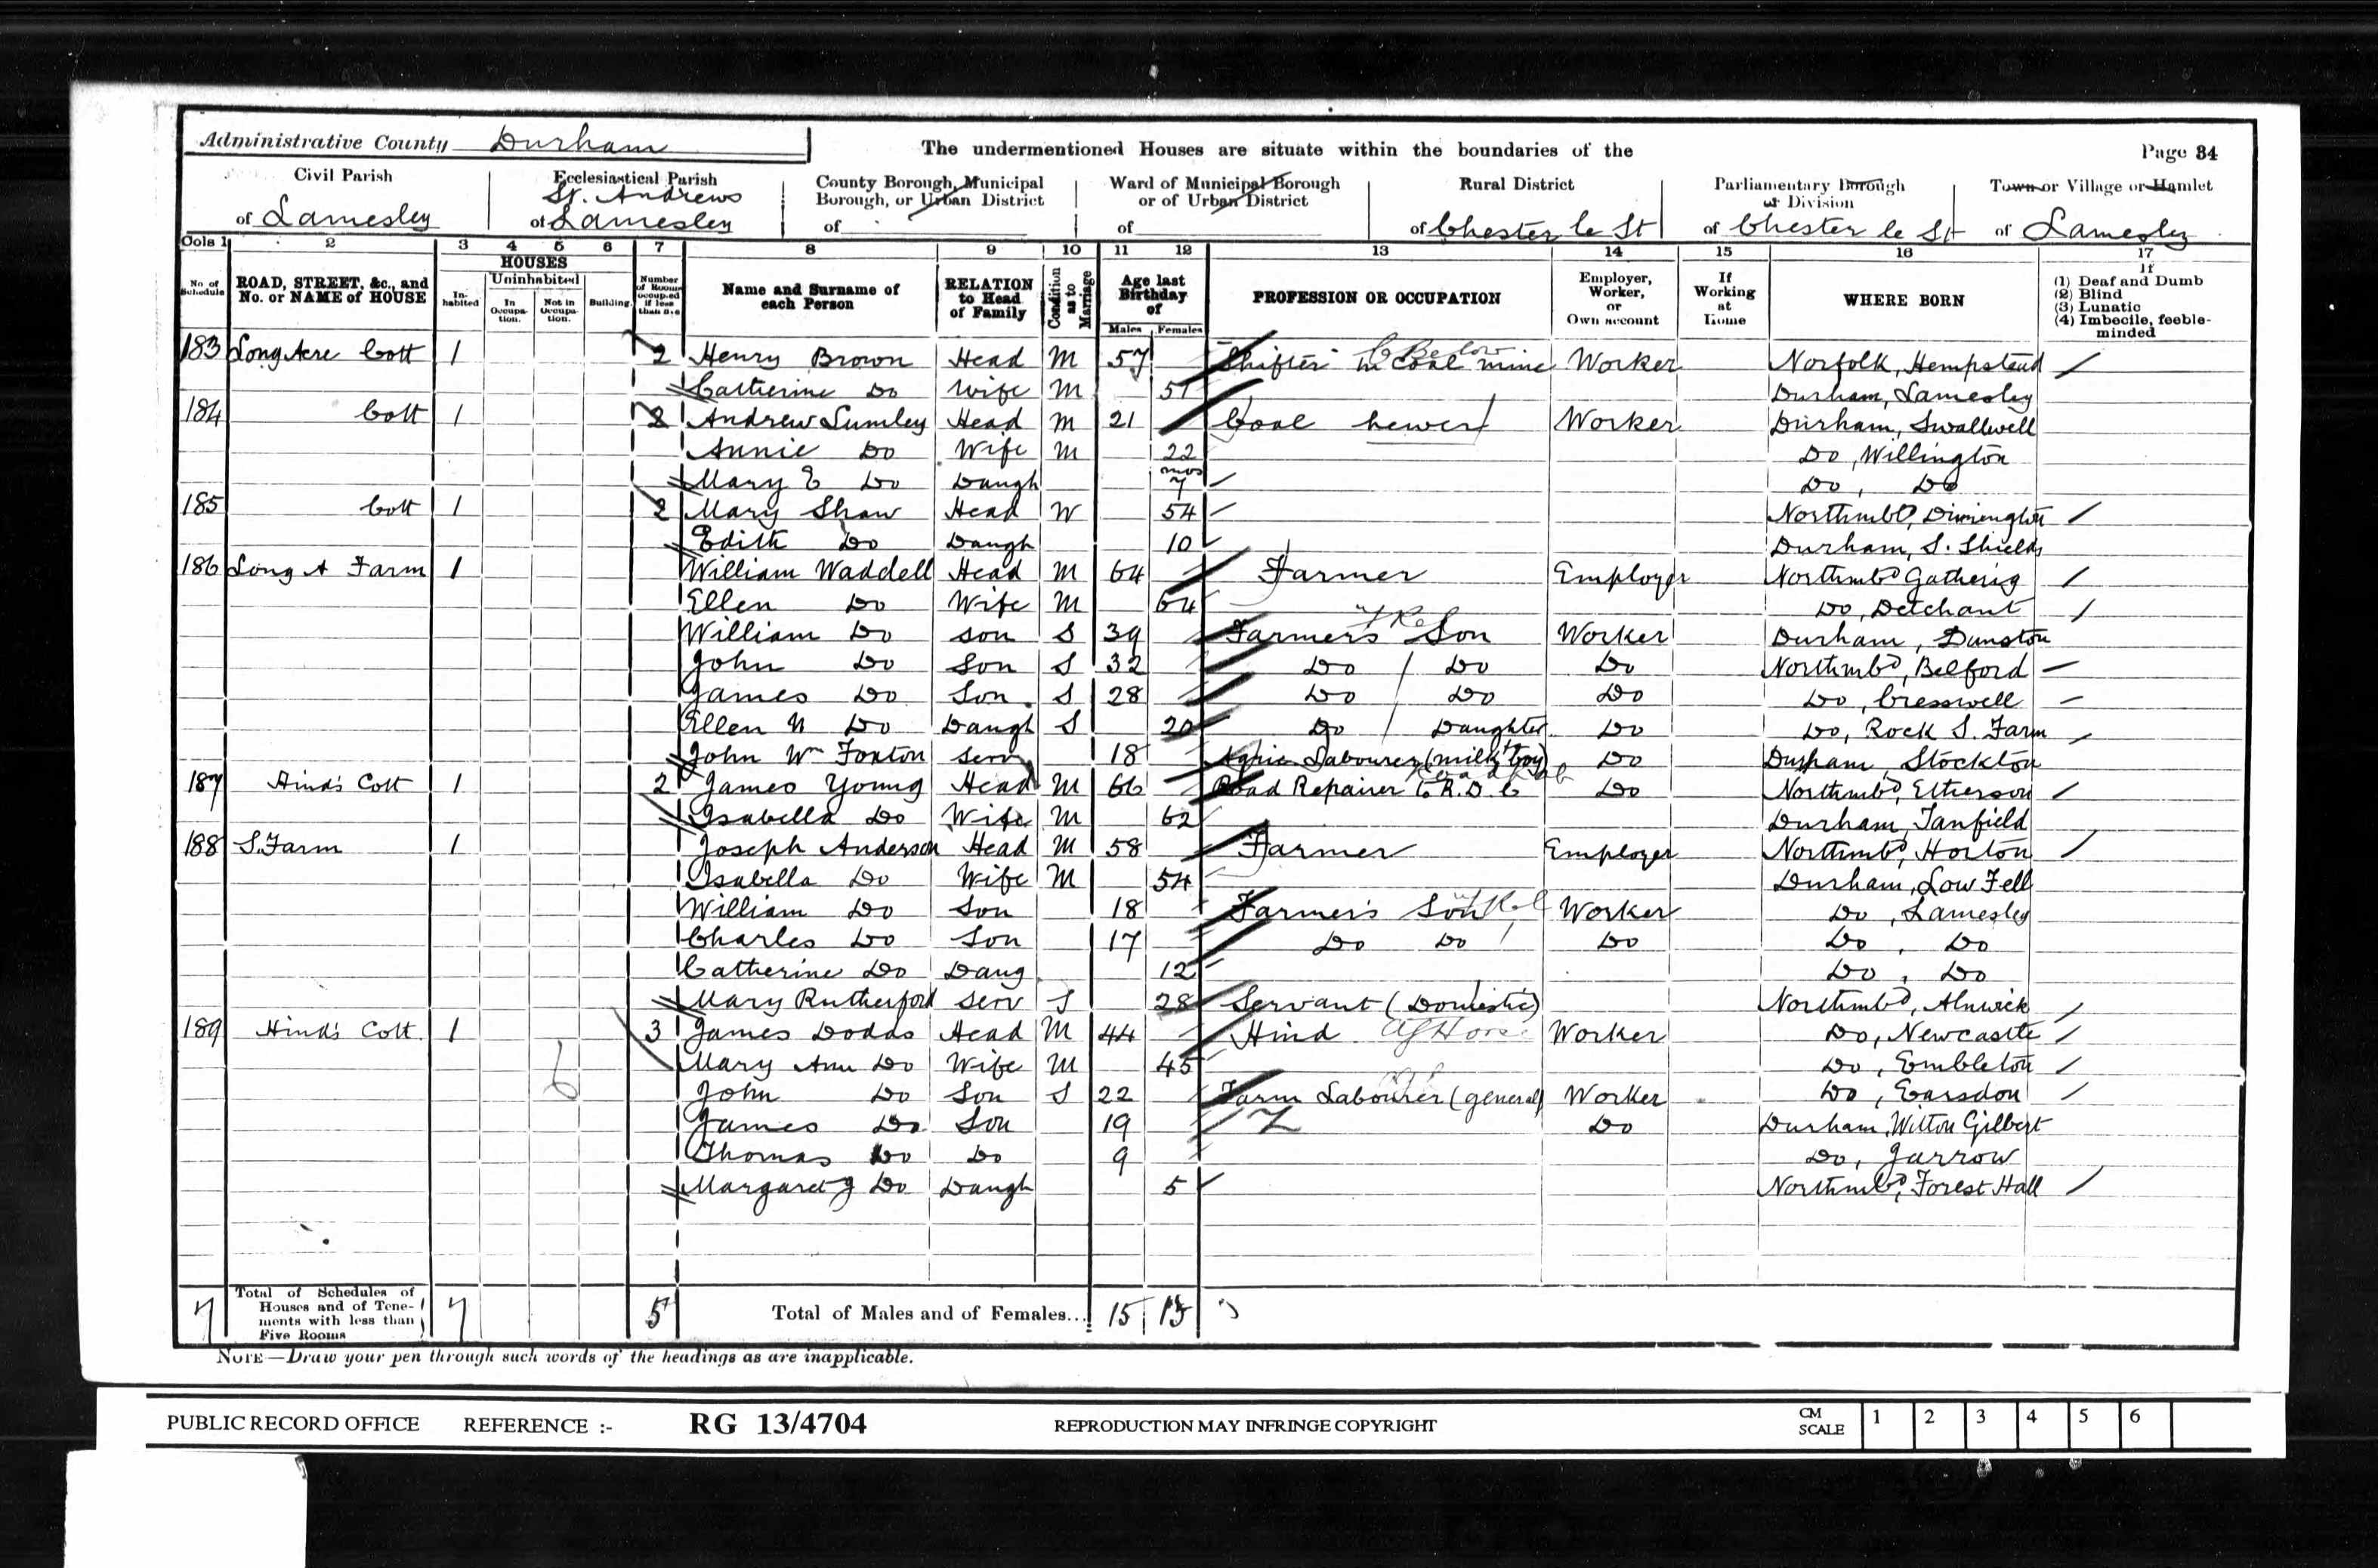 Administrative County Durham
The undermentioned Houses are situate within the boundaries of the
Page 34
Civil Parish
of Lamesley
Ecclesiastical Parish
St. Andrews
of Lamesley
County Borough, Municipal
Borough, or Urban District
of
Ward of Municipal Borough
or of Urban District
of
Rural District
of Chester le St
Parliamentary Borough
or Division
of Chester le St
Town or Village or Hamlet
of Lamesley
Cols 1 2 3 4 5 6 7 8 9 10 11 12 13 14 15 16 17
No. of Schedule
ROAD, STREET, &c., and No. or NAME of HOUSE
HOUSES
In-habited
Uninhabited
In Occupa-tion.
Not in Occupa-tion.
Building.
Number of Rooms occupied if less than five
Name and Surname of each Person
RELATION to Head of Family
Condition as to Marriage
Age last Birthday of
Males Females
PROFESSION OR OCCUPATION
Employer, Worker, or Own account
If Working at Home
WHERE BORN
If
(1) Deaf and Dumb
(2) Blind
(3) Lunatic
(4) Imbecile, feeble-minded
183 Long Acre Cott 1 2 Henry Brown Head M 57 Shifter in Coal mine Below Worker Norfolk, Hempstead
Catherine Do Wife M 51 Durham, Lamesley
184 Cott 1 2 Andrew Lumley Head M 21 Coal hewer Worker Durham, Swallwell
Annie Do Wife M 22 Do, Willington
Mary E Do Daugh 7 mos Do, Do
185 Cott 1 2 Mary Shaw Head W 54 Northmbd,
Edith Do Daugh 10 Durham, S. Shields
186 Long A Farm 1 William Waddell Head M 64 Farmer Employer Northmbd
Ellen Do Wife M 64 Do, Detchant
William Do Son S 39 Farmers Son Worker Durham, Dunston
John Do Son S 32 Do Do Do Northmbd, Belford
James Do Son S 28 Do Do Do Do, Cresswell
Ellen Do Daugh S 20 Do Daughter Do Do, Rock S. Farm
John Wm Foxton Serv 18 Agric. Labourer (milk boy) Do Durham, Stockton
187 Hind's Cott 1 2 James Young Head M 66 Road Repairer C.R.D.C Do Northmbd,
Isabella Do Wife M 62 Durham, Tanfield
188 S. Farm 1 Joseph Anderson Head M 58 Farmer Employer Northmbd, Horton
Isabella Do Wife M 54 Durham, Low Fell
William Do Son 18 Farmer's Son Worker Do, Lamesley
Charles Do Son 17 Do Do Do Do, Do
Catherine Do Daug 12 Do, Do
Mary Rutherford Serv S 28 Servant (Domestic) Northmbd, Alnwick
189 Hind's Cott 1 3 James Dodds Head M 44 Hind Worker Do, Newcastle
Mary Ann Do Wife M 45 Do, Embleton
John Do Son S 22 Farm Labourer (general) Worker Do, Earsdon
James Do Son 19 Do Durham, Witton Gilbert
Thomas Do Do 9 Do, Jarrow
Margaret J Do Daugh 5 Northmbd, Forest Hall
7 Total of Schedules of Houses and of Tene-ments with less than Five Rooms 7 5 Total of Males and of Females... 15
NOTE—Draw your pen through such words of the headings as are inapplicable.
PUBLIC RECORD OFFICE REFERENCE :- RG 13/4704 REPRODUCTION MAY INFRINGE COPYRIGHT CM SCALE 1 2 3 4 5 6